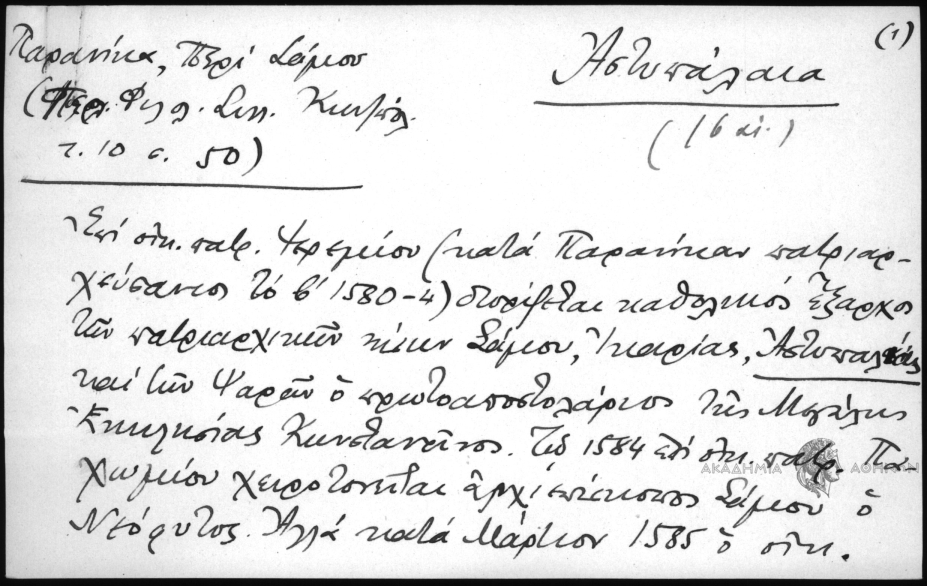 (1)
Παρανίκα, Περί Σάμου
Ἀστυπάλαια
(Περ. Φιλολ. Συλ. Κων/πόλ.
(16 αἰ.)
τ. 10 σ. 50)
Ἐπί οἰκ. πατρ. Ἱερεμίου (κατά Παρανίκαν πατριαρ-
χεύσαντος τό β' 1580-4) διορίζεται καθολικός ἔξαρχος
τῶν πατριαρχικῶν νήσων Σάμου, Ἰκαρίας, Ἀστυπαλαίας
καί τῶν Ψαρῶν ὁ πρωτοαποστολάριος τῆς Μεγάλης
Ἐκκλησίας Κωνσταντῖνος. Τῷ 1584 ἐπί οἰκ. πατρ. Πα-
ΑΚΑΔΗΜΙΑ ΑΘΗΝΩΝ
χωμίου χειροτονεῖται ἀρχιεπίσκοπος Σάμου ὁ
Νεόφυτος. Ἀλλά κατά Μάρτιον 1585 ὁ οἰκ.